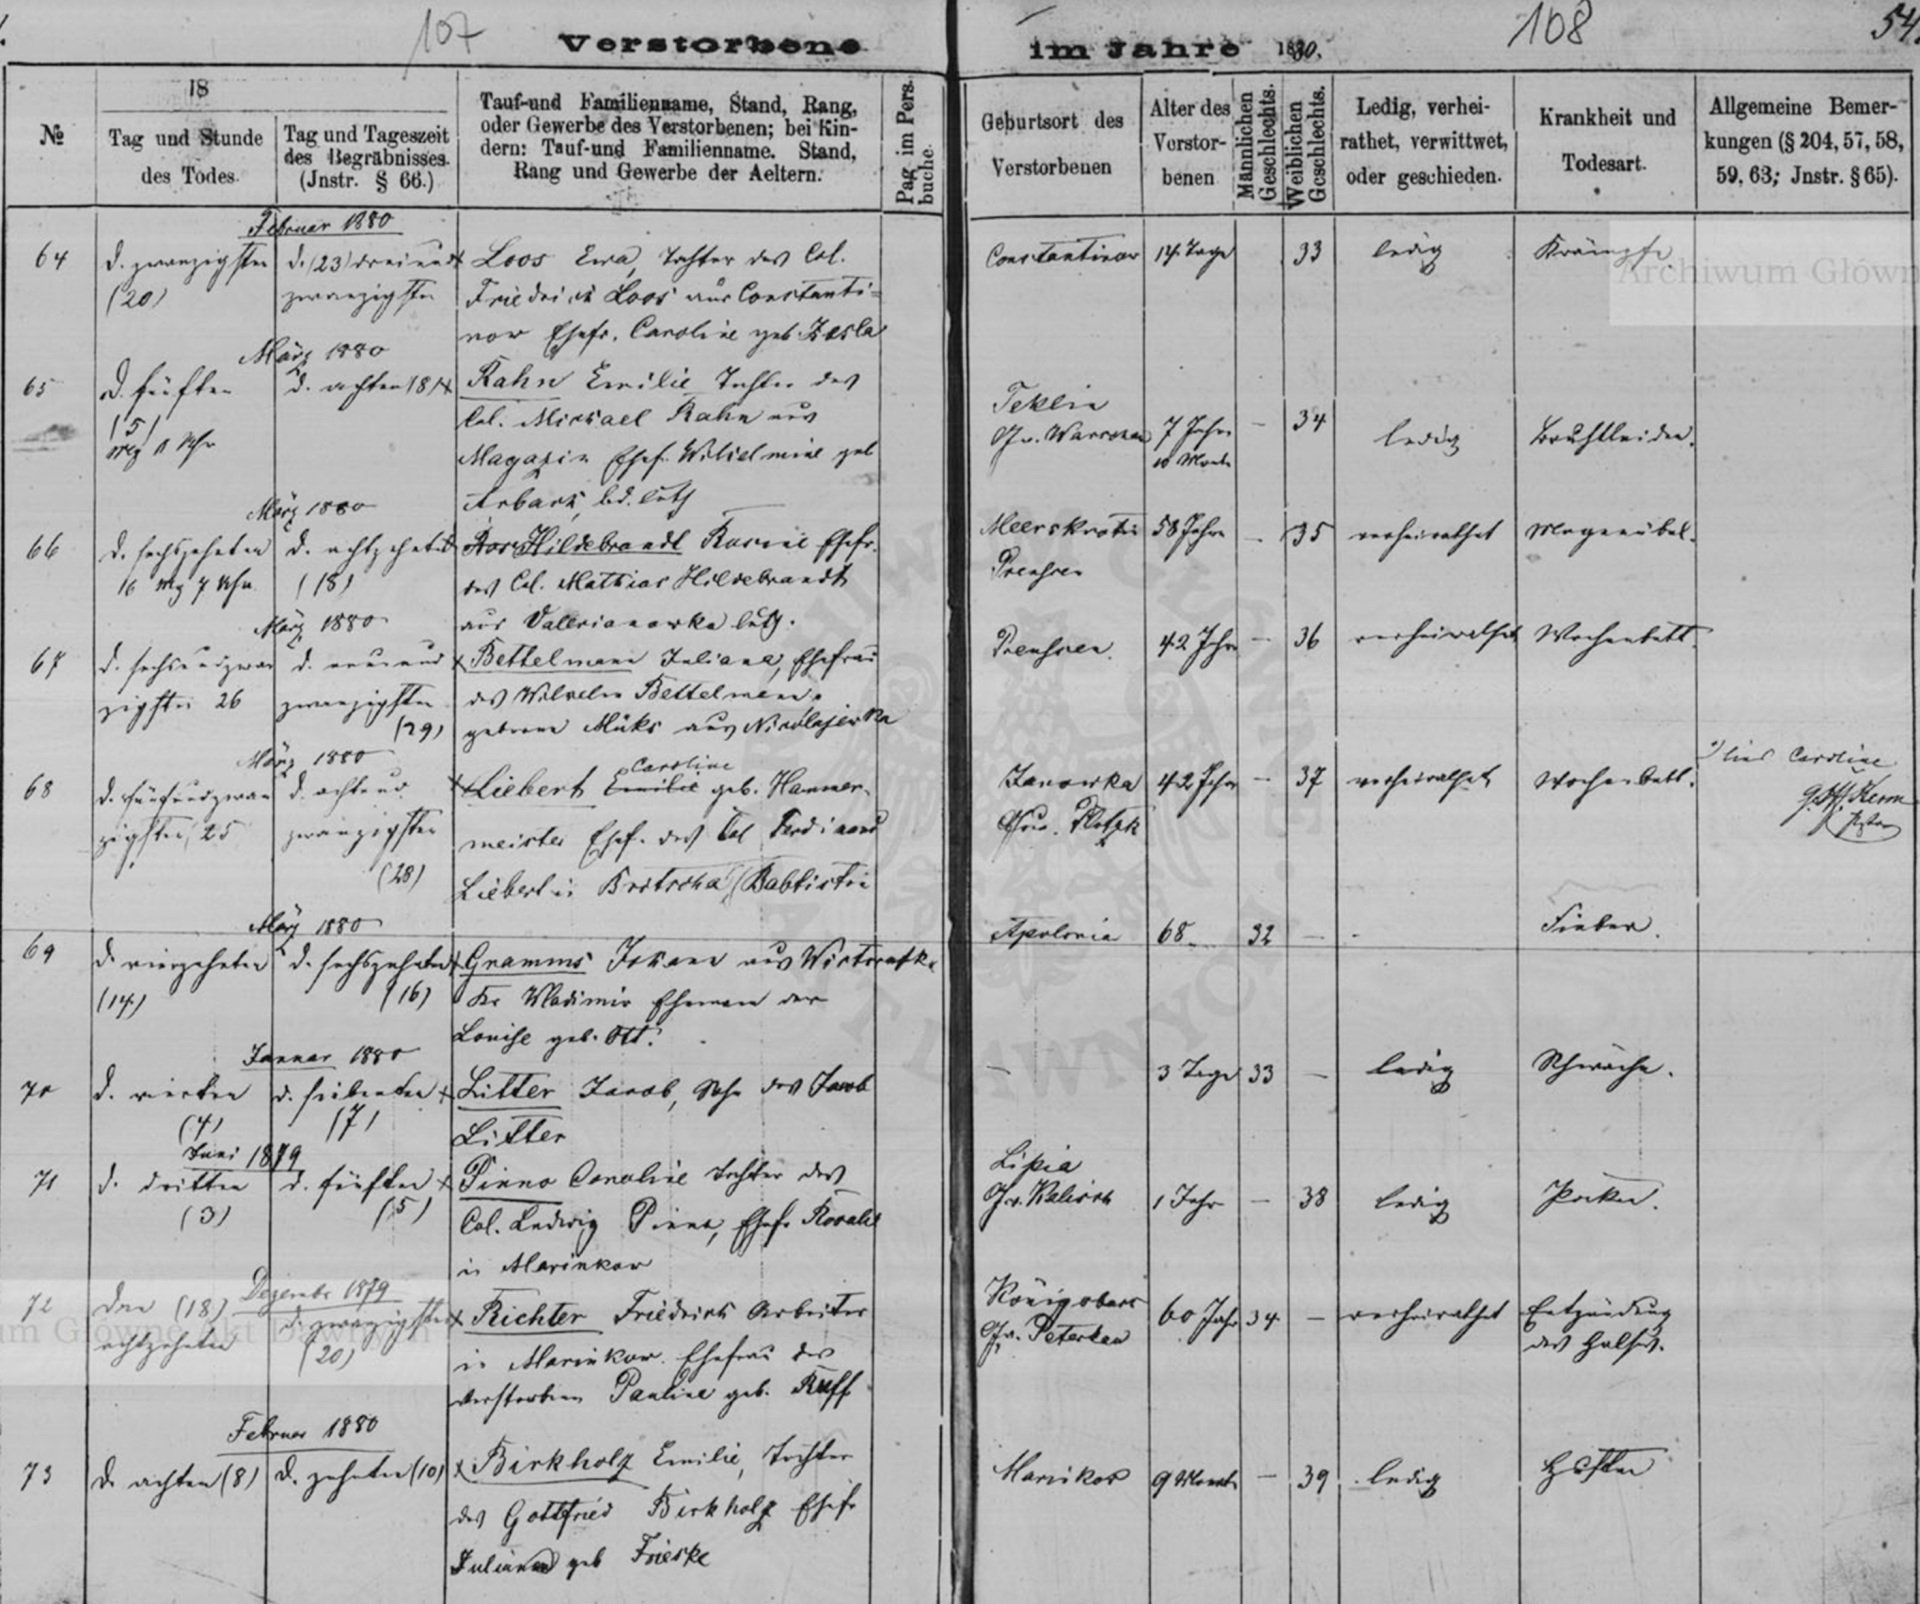 107
Verstorbene
im Jahre 1880.
108
54.
№
18
Tag und Stunde
des Todes.
Tag und Tageszeit
des Begräbnisses.
(Jnstr. § 66.)
Tauf-und Familienname, Stand, Rang,
oder Gewerbe des Verstorbenen; bei Kin-
dern: Tauf-und Familienname. Stand,
Rang und Gewerbe der Aeltern.
Pag. im Pers.
buche.
Geburtsort des
Verstorbenen
Alter des
Verstor-
benen
Männlichen
Geschlechts.
Weiblichen
Geschlechts.
Ledig, verhei-
rathet, verwittwet,
oder geschieden.
Krankheit und
Todesart.
Allgemeine Bemer-
kungen (§ 204, 57, 58,
59, 63; Jnstr. § 65).
Februar 1880
64
d. zwanzigsten
(20)
d. (23) dreiund
zwanzigsten
Loos Eva, Tochter des Col.
Friedrich Loos aus Constanti-
now Ehefr. Caroline geb.
Constantinow
14 Tage
33
ledig
Krämpfe
März 1880
65
d. fünften
(5)
Mg Uhr
d. achten (8)
Rahn Emilie Tochter des
Col. Michael Rahn aus
Magazin Ehef. Wilhelmine geb
bd. luth
Teklin
Gv. Warschau
7 Jahre
10 Monate
34
ledig
Brustleiden.
März 1880
66
d. sechszehnten
16 Mg 7 Uhr
d. achtzehnten
(18)
Hildebrandt Rosine Ehefr.
des Col. Mathias Hildebrandt
aus Vallerianowka luth.
Preussen
58 Jahre
35
verheirathet
Magenübel.
März 1880
67
d. sechsundzwan
zigsten 26
d. neunund
zwanzigsten
(29)
Bettelmann Juliana, Ehefrau
des Wilhelm Bettelmann,
geborene Müks aus Nicolajewka
Preussen.
42 Jahre
36
verheirathet
Wochenbett.
März 1880
68
d. fünfundzwan
zigsten, 25
d. achtund
zwanzigsten
(28)
Caroline
Liebert Emilie geb. Hammer-
meister Ehef. des Col Ferdinand
Liebert in (Babtistin
Janowka
Gouv. Plotzk
42 Jahre
37
verheirathet
Wochenbett.
lies Caroline
Pastor
März 1880
69
d. vierzehnten
(14)
d. sechszehnten
(16)
Gramms Johann aus
Kr Wladimir Ehemann der
Louise geb. Ott.
Apolonia
68
32
Fieber.
Januar 1880
70
d. vierten
(4)
d. siebenten
(7)
Litter Jacob, Sohn des Jacob
Litter
3 Tage
33
ledig
Schwäche.
Juni 1879
71
d. dritten
(3)
d. fünften
(5)
Pinno Caroline Tochter des
Col. Ludwig Pinno, Ehefr Rosalie
in Marinkow
Lipia
Gv. Kalisch
1 Jahr
38
ledig
Pocken.
Dezember 1879
72
den (18)
achtzehnten
d. zwanzigsten
(20)
Richter Friedrich Arbeiter
in Marinkow. Ehefrau des
verstorbenen Pauline geb. Ruff
Gv. Peterkau
60 Jahr
34
verheirathet
Entzündung
des Halses.
Februar 1880
73
d. achten (8)
d. zehnten (10)
Birkholz Emilie, Tochter
des Gottfried Birkholz Ehefr
Juliana geb Frieske
Marinkow
9 Monate
39
ledig
Husten
Archiwum Główn